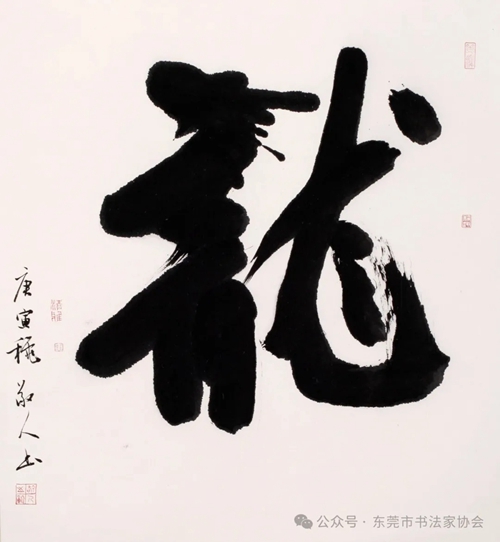 龍
庚寅穐 敬人书
公众号·东莞市书法家协会